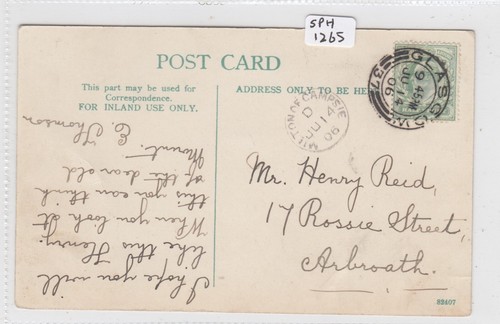 SPH
1265
POST CARD
This part may be used for
Correspondence.
FOR INLAND USE ONLY.
ADDRESS ONLY TO BE HE
I hope you will
like this Henry.
When you look at
this you can think
of the dear old
Mount.
E. Thomson
MILTON OF CAMPSIE
D
JU 14
06
GLASGOW
9 45PM
JU 14
06
37
Mr. Henry Reid,
17 Rossie Street,
Arbroath.
82407